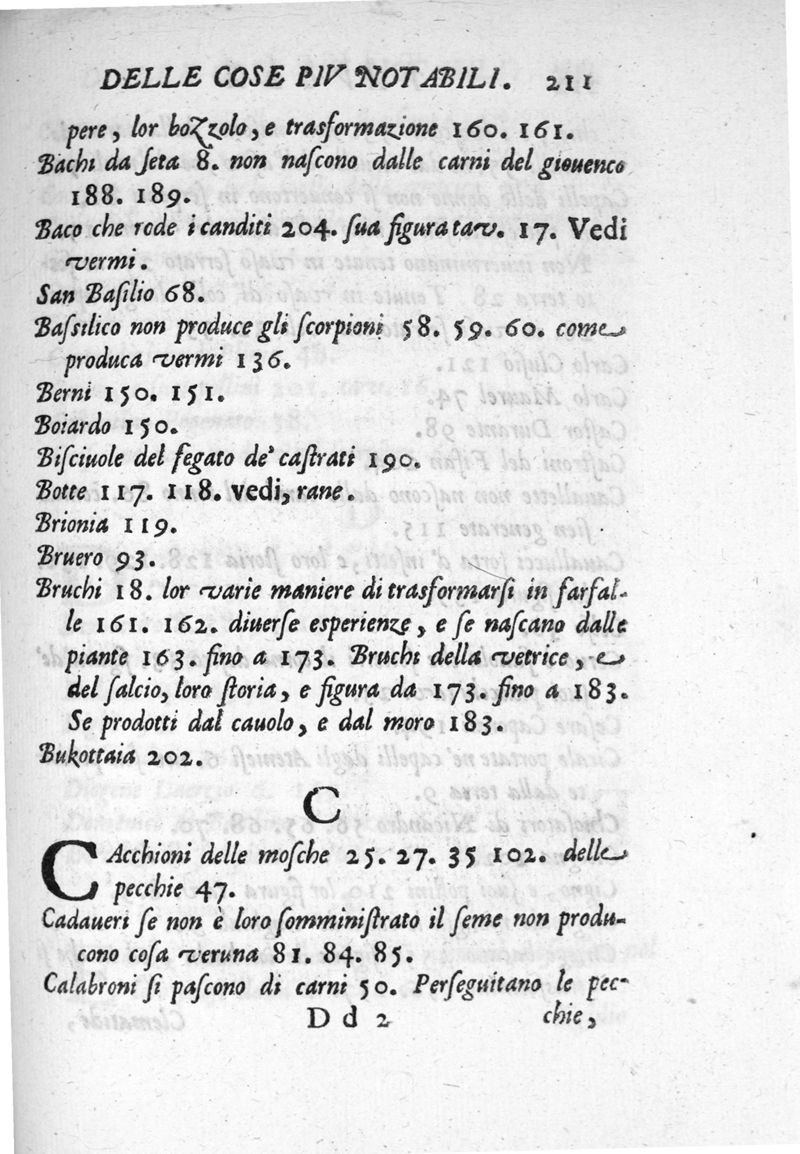 DELLE COSE PIV NOTABILI. 211
pere, lor bozzolo, e trasformazione 160. 161.
Bachi da ſeta 8. non naſcono dalle carni del giouenco
188. 189.
Baco che rode i canditi 204. ſua figura tav. 17. Vedi
vermi.
San Baſilio 68.
Baſsilico non produce gli ſcorpioni 58. 59. 60. come
produca vermi 136.
Berni 150. 151.
Boiardo 150.
Biſciuole del fegato de' caſtrati 190.
Botte 117. 118. vedi, rane.
Brionia 119.
Bruero 93.
Bruchi 18. lor varie maniere di trasformarſi in farfal-
le 161. 162. diuerſe esperienze, e ſe naſcano dalle
piante 163. fino a 173. Bruchi della vetrice, e
del ſalcio, loro ſtoria, e figura da 173. fino a 183.
Se prodotti dal cauolo, e dal moro 183.
Bukottaia 202.
C
CAcchioni delle moſche 25. 27. 35 102. delle
pecchie 47.
Cadaueri ſe non è loro ſomminiſtrato il ſeme non produ-
cono coſa veruna 81. 84. 85.
Calabroni ſi paſcono di carni 50. Perſeguitano le pec-
D d 2 chie,